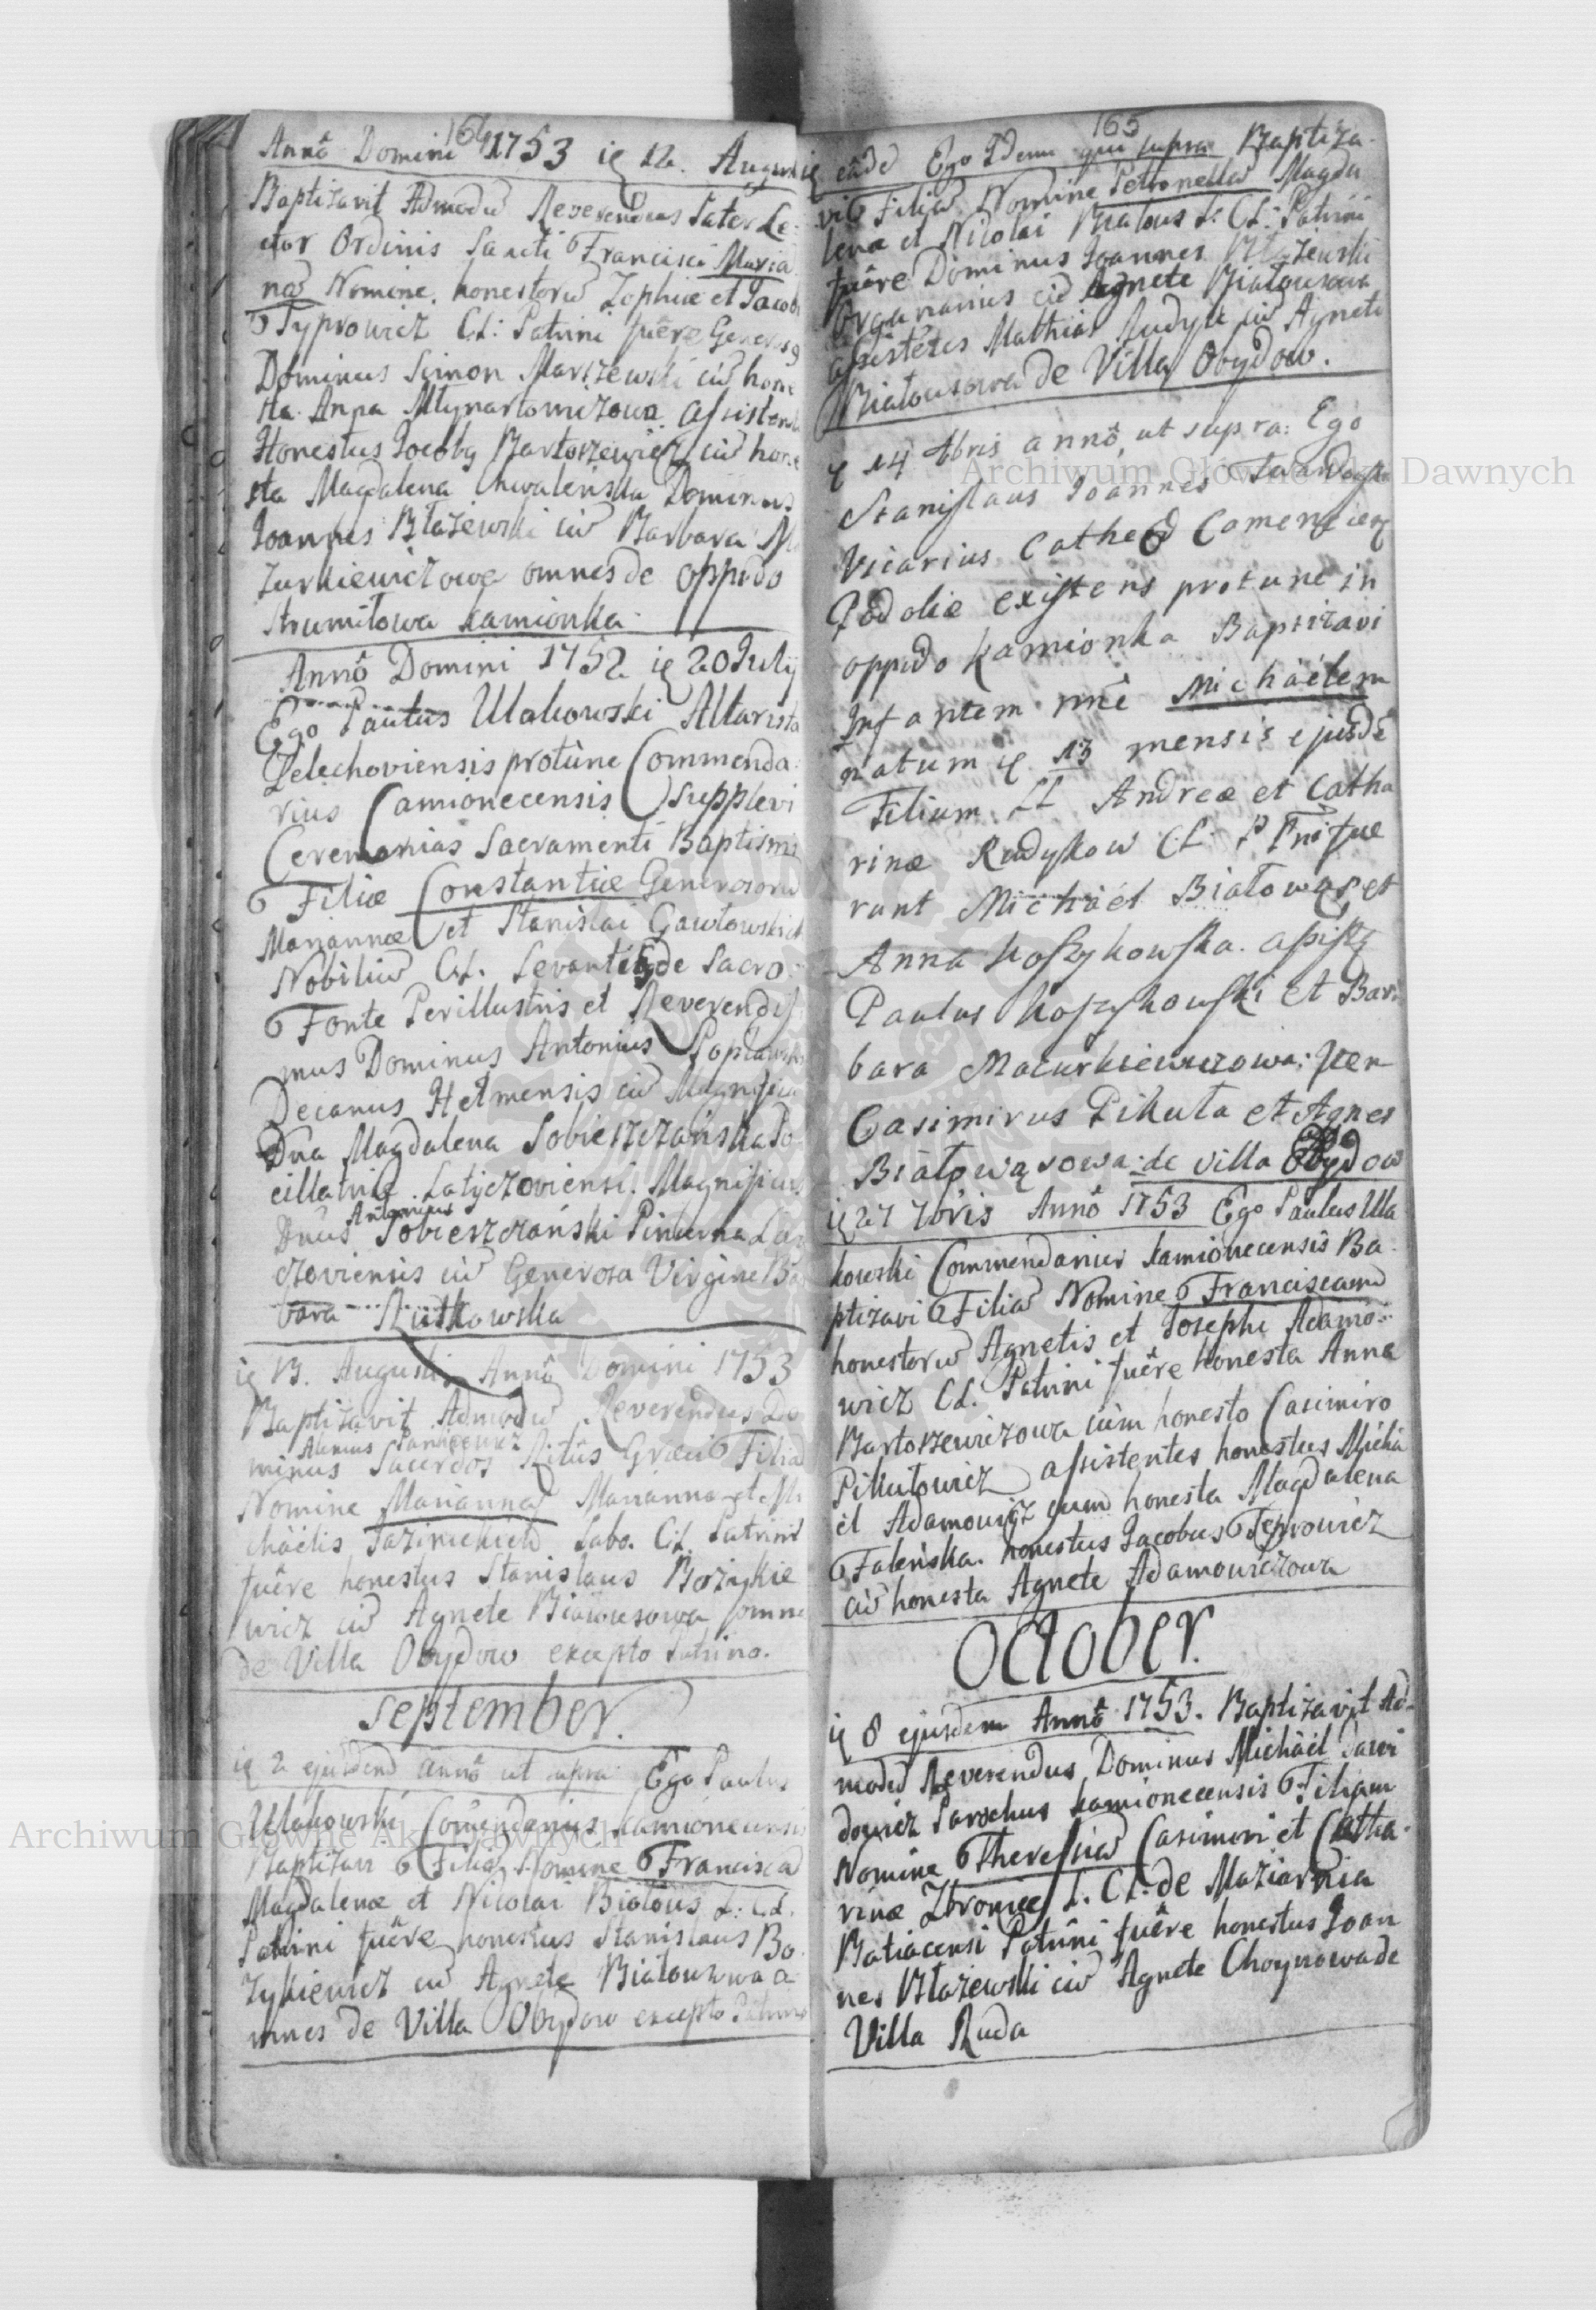 164
Annô Domini 1753 ię 12. Augusti
Baptizavit Admodũ Reverendus Pater Le-
ctor Ordinis Sancti Francisci Maria
nã Nomine. honestorũ Zophiæ et Jacobi
Typrowicz C.L: Patrini fuêre Generosus
Dominus Simon Marszewski cũ hone
sta Anna Młynartowiczowa. Assistentes
Honestus Jacoby Bartoszewicz cũ hone
sta Magdalena Chwaleńska Dominus
Joannes Błażewski cũ Barbara
Zurkiewiczowa omnes de Oppido
Strumiłowa Kamionka.
Annô Domini 1752 ię 20 July
Ego Paulus Ulakowski Altarista
Zelechoviensis protunc Commenda-
rius Camionecensis supplevi
Ceremonias Sacramenti Baptismi
Filiæ Constantiæ Generosorũ
Mariannæ et Stanislai Gawłowskich
Nobiliũ C.L. Levantes de Sacro
Fonte Perillustris et Reverendiss
mus Dominus Antonius Popławski
Decanus Hełmensis cũ Magnifica
Dña Magdalena Sobieszczańska Po
cillatrice Latyczoviensi. Magnificus
Dñus Antonius Sobieszczański Pincerna La
czoviensis cũ Generosa Virgine Bar
bara Rutkowska
ię 13. Augusti Annô Domini 1753
Baptizavit Admodũ Reverendus Do
minus Sacerdos Ritûs Græci Filiã
Nomine Mariannã Marianna et Mi
chäelis Jazinickich Labo. C.L. Patrini
fuêre honestus Stanislaus Bozykie
wicz cũ Agnete Białousowa omnes
de Villa Obydow excepto Patrino.
September.
ię 2 ejusdem annô ut supra Ego Paulus
Ulakowski Com̃endarius Kamionecensis
Baptizavi Filiã Nomine Franciscã
Magdalenæ et Nicolai Białous L: C.L.
Patrini fuêre honestus Stanislaus Bo
zykiewicz cũ Agnete Białousowa o
mnes de Villa Obydow excepto Patrino
165
ię eãde Ego Idem qui supra Baptiza-
vi Filiã Nomine Petronellã Magda
lenæ et Nicolai Białous L: C.L: Patrini
fuêre Dominus Joannes Błażewski
Organarius cũ Agnete Białousowa
assistêtes Mathias Rudyk cũ Agnete
Białousowa de Villa Obydow.
ię 14 7bris annô, ut supra: Ego
Stanislaus Joannes Twardoch
Vicarius Cathed Camenecen
Podoliæ existens protunc in
oppido Kamionka Baptizavi
Infantem nñe Michäelem
natum ię 13 mensis ejusdê
Filium LL Andreæ et Catha
rinæ Rudykow C.L. PPni fue
runt Michäel Białowąs et
Anna Koszykowska. assistę
Paulus Koszykowski et Bar
bara Macurkiewiczowa: Iten
Casimirus Pikuta et Agnes
Białowąsowa: de villa Obydow
ię 27 7bris Annô 1753 Ego Paulus Ula
kowski Commendarius Kamionecensis Ba-
ptizavi Filiã Nomine Franciscam
honestorũ Agnetis et Josephi Adamo-
wicz C.L. Patrini fuêre honesta Anna
Bartoszewiczowa cum honesto Casimiro
Pikutowicz assistentes honestus Michä
el Adamowicz cum honesta Magdalena
Faleńska. honestus Jacobus Typrowicz
cũ honesta Agnete Adamowiczowa
October.
ię 8 ejusdem Annô 1753. Baptizavit Ad-
modũ Reverendus Dominus Michäel Dawi
dowicz Parochus Kamionecensis Filiam
Nomine Theresiã Casimiri et Catha-
rinæ Zbroniec L. C.L: de Maziarnia
Batiacensi Patrini fuêre honestus Joan
nes Błażewski cũ Agnete Choynowa de
Villa Ruda
Archiwum Główne Akt Dawnych
Archiwum Główne Akt Dawnych